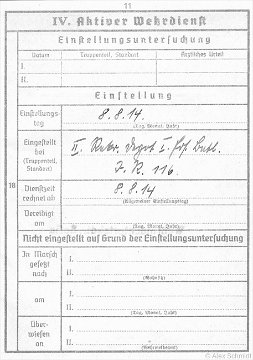 11
IV. Aktiver Wehrdienst
Einstellungsuntersuchung
Datum Truppenteil, Standort Ärztliches Urteil
I.
II.
Einstellung
Einstellungs-
tag
8.8.14.
(Tag, Monat, Jahr)
Eingestellt
bei
(Truppenteil,
Standort)
II. Rekr. Depot I. Ers. Batl.
J. R. 116.
18
Dienstzeit
rechnet ab
8.8.14
Vereidigt
am
(Tag, Monat, Jahr)
Nicht eingestellt auf Grund der Einstellungsuntersuchung
In Marsch
gesetzt
nach
I.
II.
am
I.
II.
(Tag, Monat, Jahr)
Über-
wiesen
an
I.
II.
© Alex Schmidt